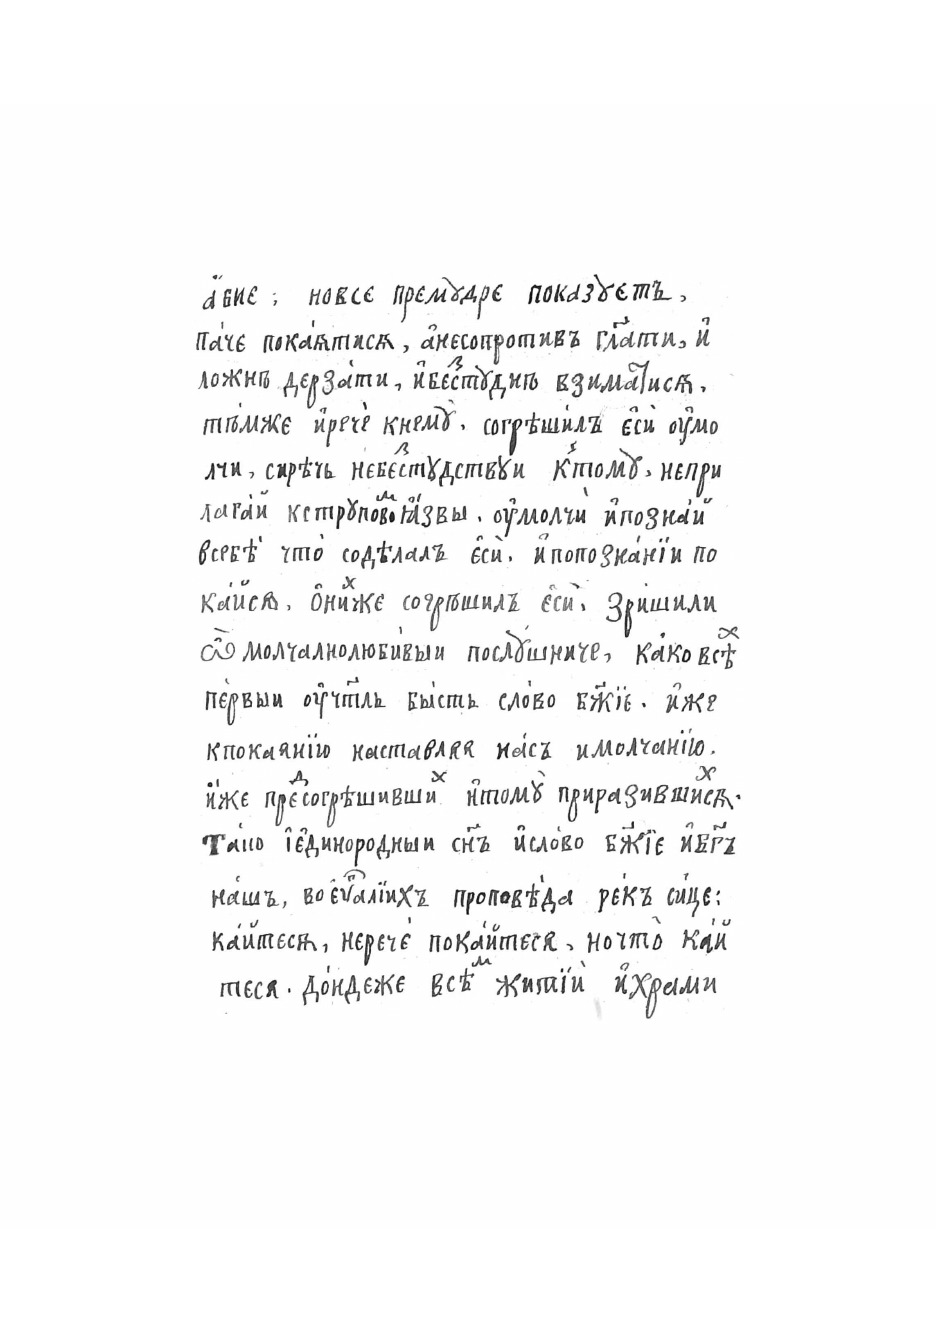 а҆́бие ; новсе премꙋ̀дре показꙋ́етъ ,
па́че пока́ѧтисѧ , а҆несопротивъ гл҃ати , и҆
ложнѣ дерза́ти , и҆беⷥстꙋ́днѣ взима́тисѧ .
тѣ́мже и҆речѐ кнемꙋ̀ . согрѣши́лъ є҆сѝ оу҆мо
лчи , сирѣчь небеⷥстꙋдствꙋи к̾томꙋ̀ , непри
лага́й кстрꙋпово́ⷨ ꙗ҆́звы . оу҆молчѝ и҆позна́й
всебѣ̀ что̀ содѣ́лалъ є҆сѝ . и҆попозна́нїи по
ка́йсѧ . ѻ҆ни́ⷯже согрѣшилъ є҆сѝ . Зри́шили
ѽ молчалнолюби́выи послꙋ́шниче , ка́ко всѣ́ⷯ
пе́рвыи оу҆чт҃ль бы́сть сло́во бж҃їе . и҆́же
кпокаянїю наставляя на́съ имолча́нїю .
и҆́же преⷣсогрѣшивши́ⷯ и҆томꙋ̀ приразившиⷯсѧ .
Та́ко і҆єди́нородныи сн҃ъ и҆сло́во бж҃їе и҆бг҃ъ
на́шъ , воє҆ѵⷢ҇алїихъ проповѣ́да ре́къ си́це :
ка́йтесѧ , нерече́ пока́йтеся , но что̀ ка́й
теся . до́ндеже всѣ́ⷨ житїи̇̀ и҆храми